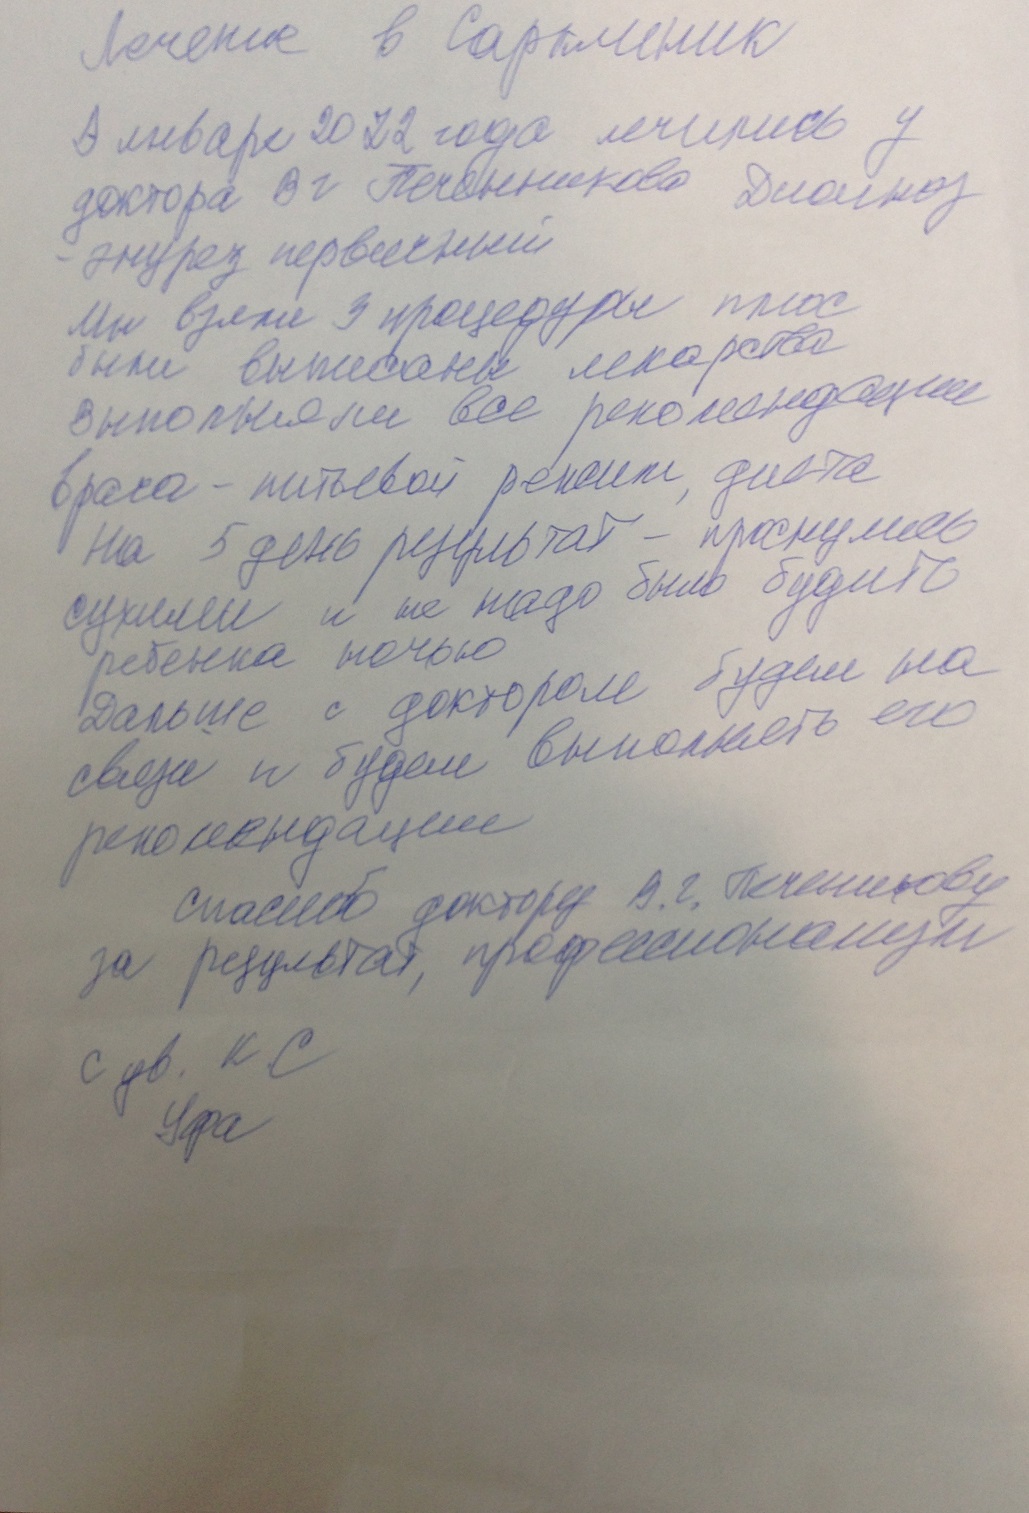 Лечение в Сарклиник
В январе 2022 года лечились у
доктора В г Печенникова Диагноз
- энурез первичный
Мы взяли 3 процедуры плюс
были выписаны лекарства
Выполняли все рекомендации
врача - питьевой режим, диета
На 5 день результат - проснулись
сухими и не надо было будить
ребенка ночью
Дальше с доктором будем на
связи и будем выполнять его
рекомендации
Спасибо доктору В.г.
за результат, профессионализм
С ув. К С
Уфа